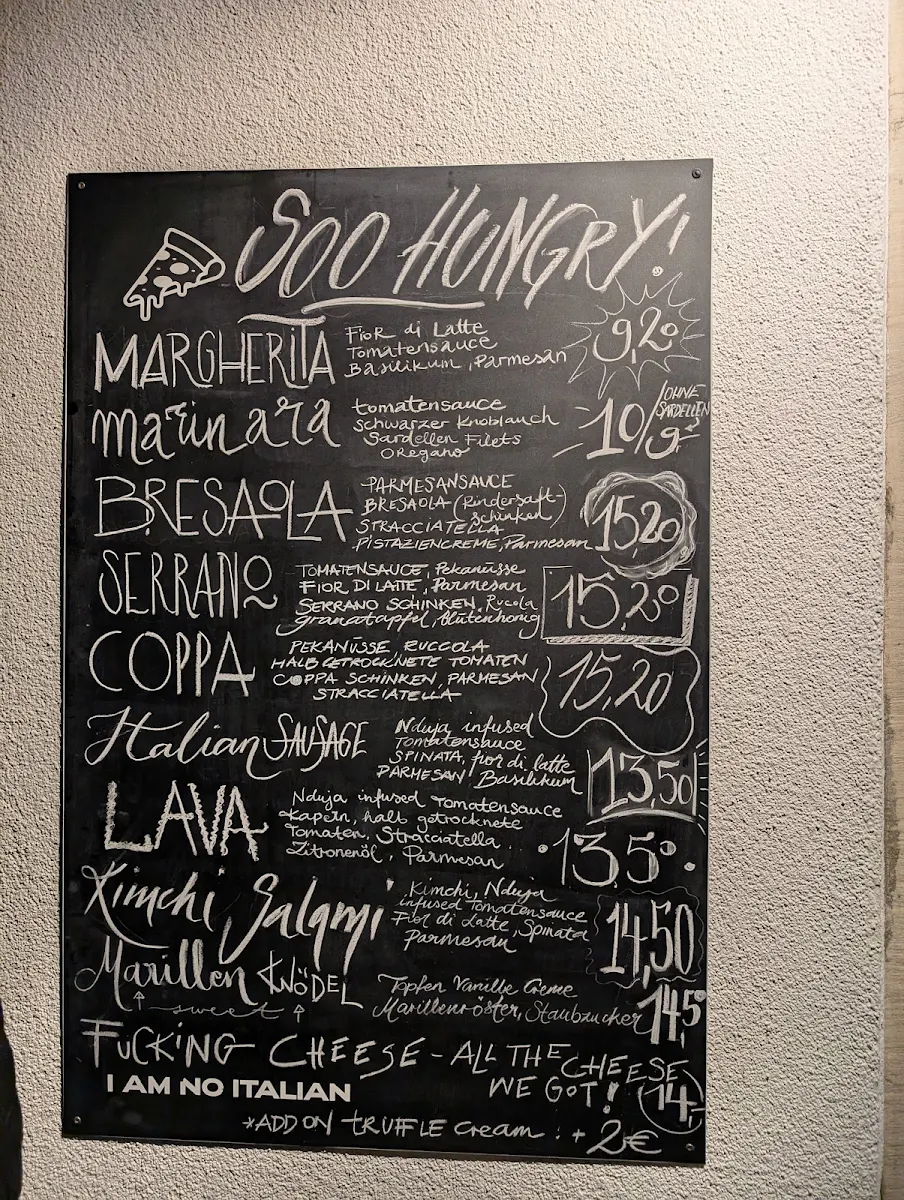 SOO HUNGRY!
MARGHERITA
Fior di Latte
Tomatensauce
Basilikum, Parmesan
9,20
marinara
tomatensauce
schwarzer Knoblauch
Sardellen Filets
Oregano
10/
OHNE
SARDELLEN
9,-
BRESAOLA
PARMESANSAUCE
BRESAOLA (Rindersaft-
schinken)
STRACCIATELLA
PISTAZIENCREME, Parmesan
15,20
SERRANO
TOMATENSAUCE, Pekanüsse
FIOR DI LATTE, Parmesan
SERRANO SCHINKEN, Rucola
Granatapfel, Blütenhonig
15,20
COPPA
PEKANÜSSE, RUCCOLA
HALB GETROCKNETE TOMATEN
COPPA SCHINKEN, PARMESAN
STRACCIATELLA
15,20
Italian SAUSAGE
Nduja infused
Tomatensauce
SPINATA, fior di latte
PARMESAN, Basilikum
13,50
LAVA
Nduja infused Tomatensauce
Kapern, halb getrocknete
Tomaten, Stracciatella
Zitronenöl, Parmesan
13,5°
Kimchi Salami
Kimchi, Nduja
infused Tomatensauce
Fior di Latte, Spinata
Parmesan
14,50
Marillen KNÖDEL
sweet
Topfen Vanille Creme
Marillenröster, Staubzucker
14,5°
FUCKING CHEESE - ALL THE CHEESE
WE GOT!
14,-
I AM NO ITALIAN
*ADD ON TRUFFLE cream : + 2€